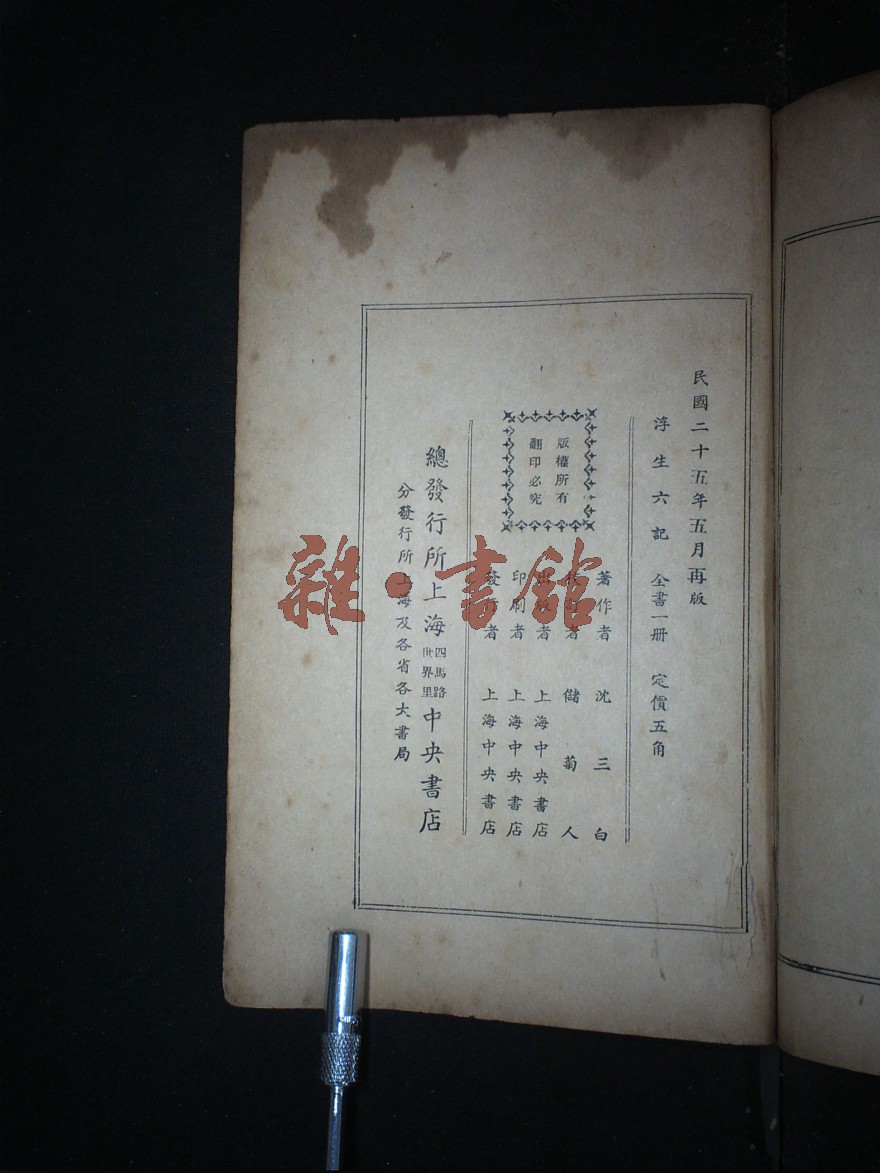 民國二十五年五月再版
浮生六記 全書一册 定價五角
版權所有
翻印必究
著作者 沈三白
者 儲菊人
出版者 上海中央書店
印刷者 上海中央書店
發行者 上海中央書店
總發行所上海四馬路世界里中央書店
分發行所上海及各省各大書局
雜·書館